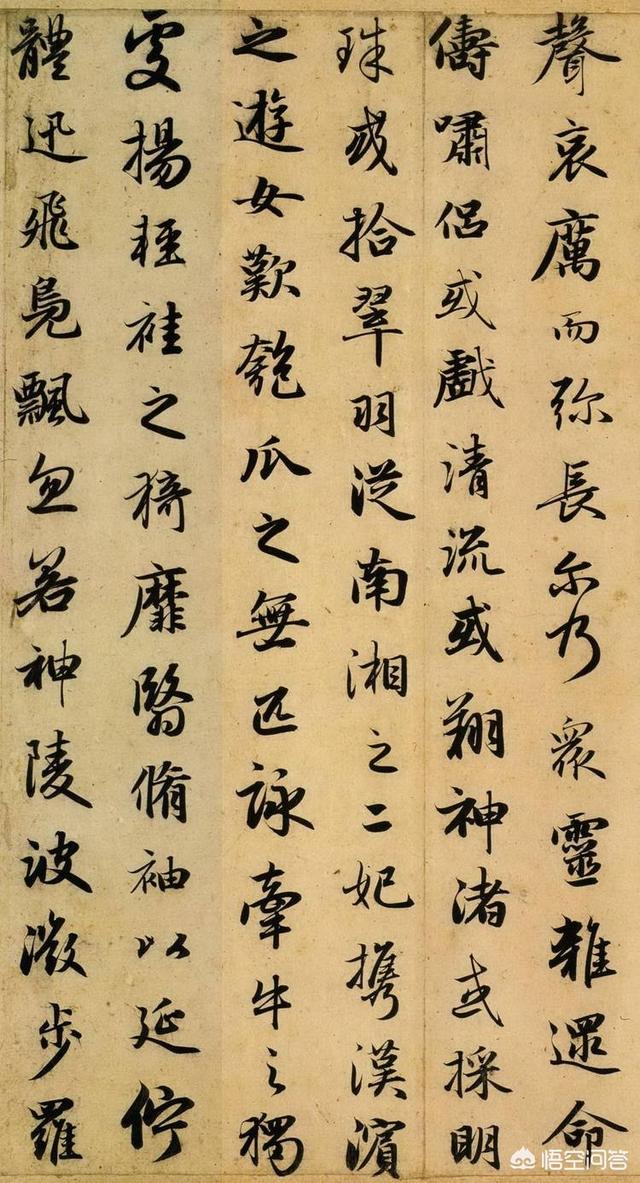 聲哀厲而弥長尔乃眾靈雜遝命
儔嘯侶或戲清流或翔神渚或採明
珠或拾翠羽從南湘之二妃攜漢濱
之遊女歎匏瓜之無匹詠牽牛之獨
處揚輕袿之猗靡翳脩袖以延佇
體迅飛鳧飄忽若神陵波微步羅
悟空问答